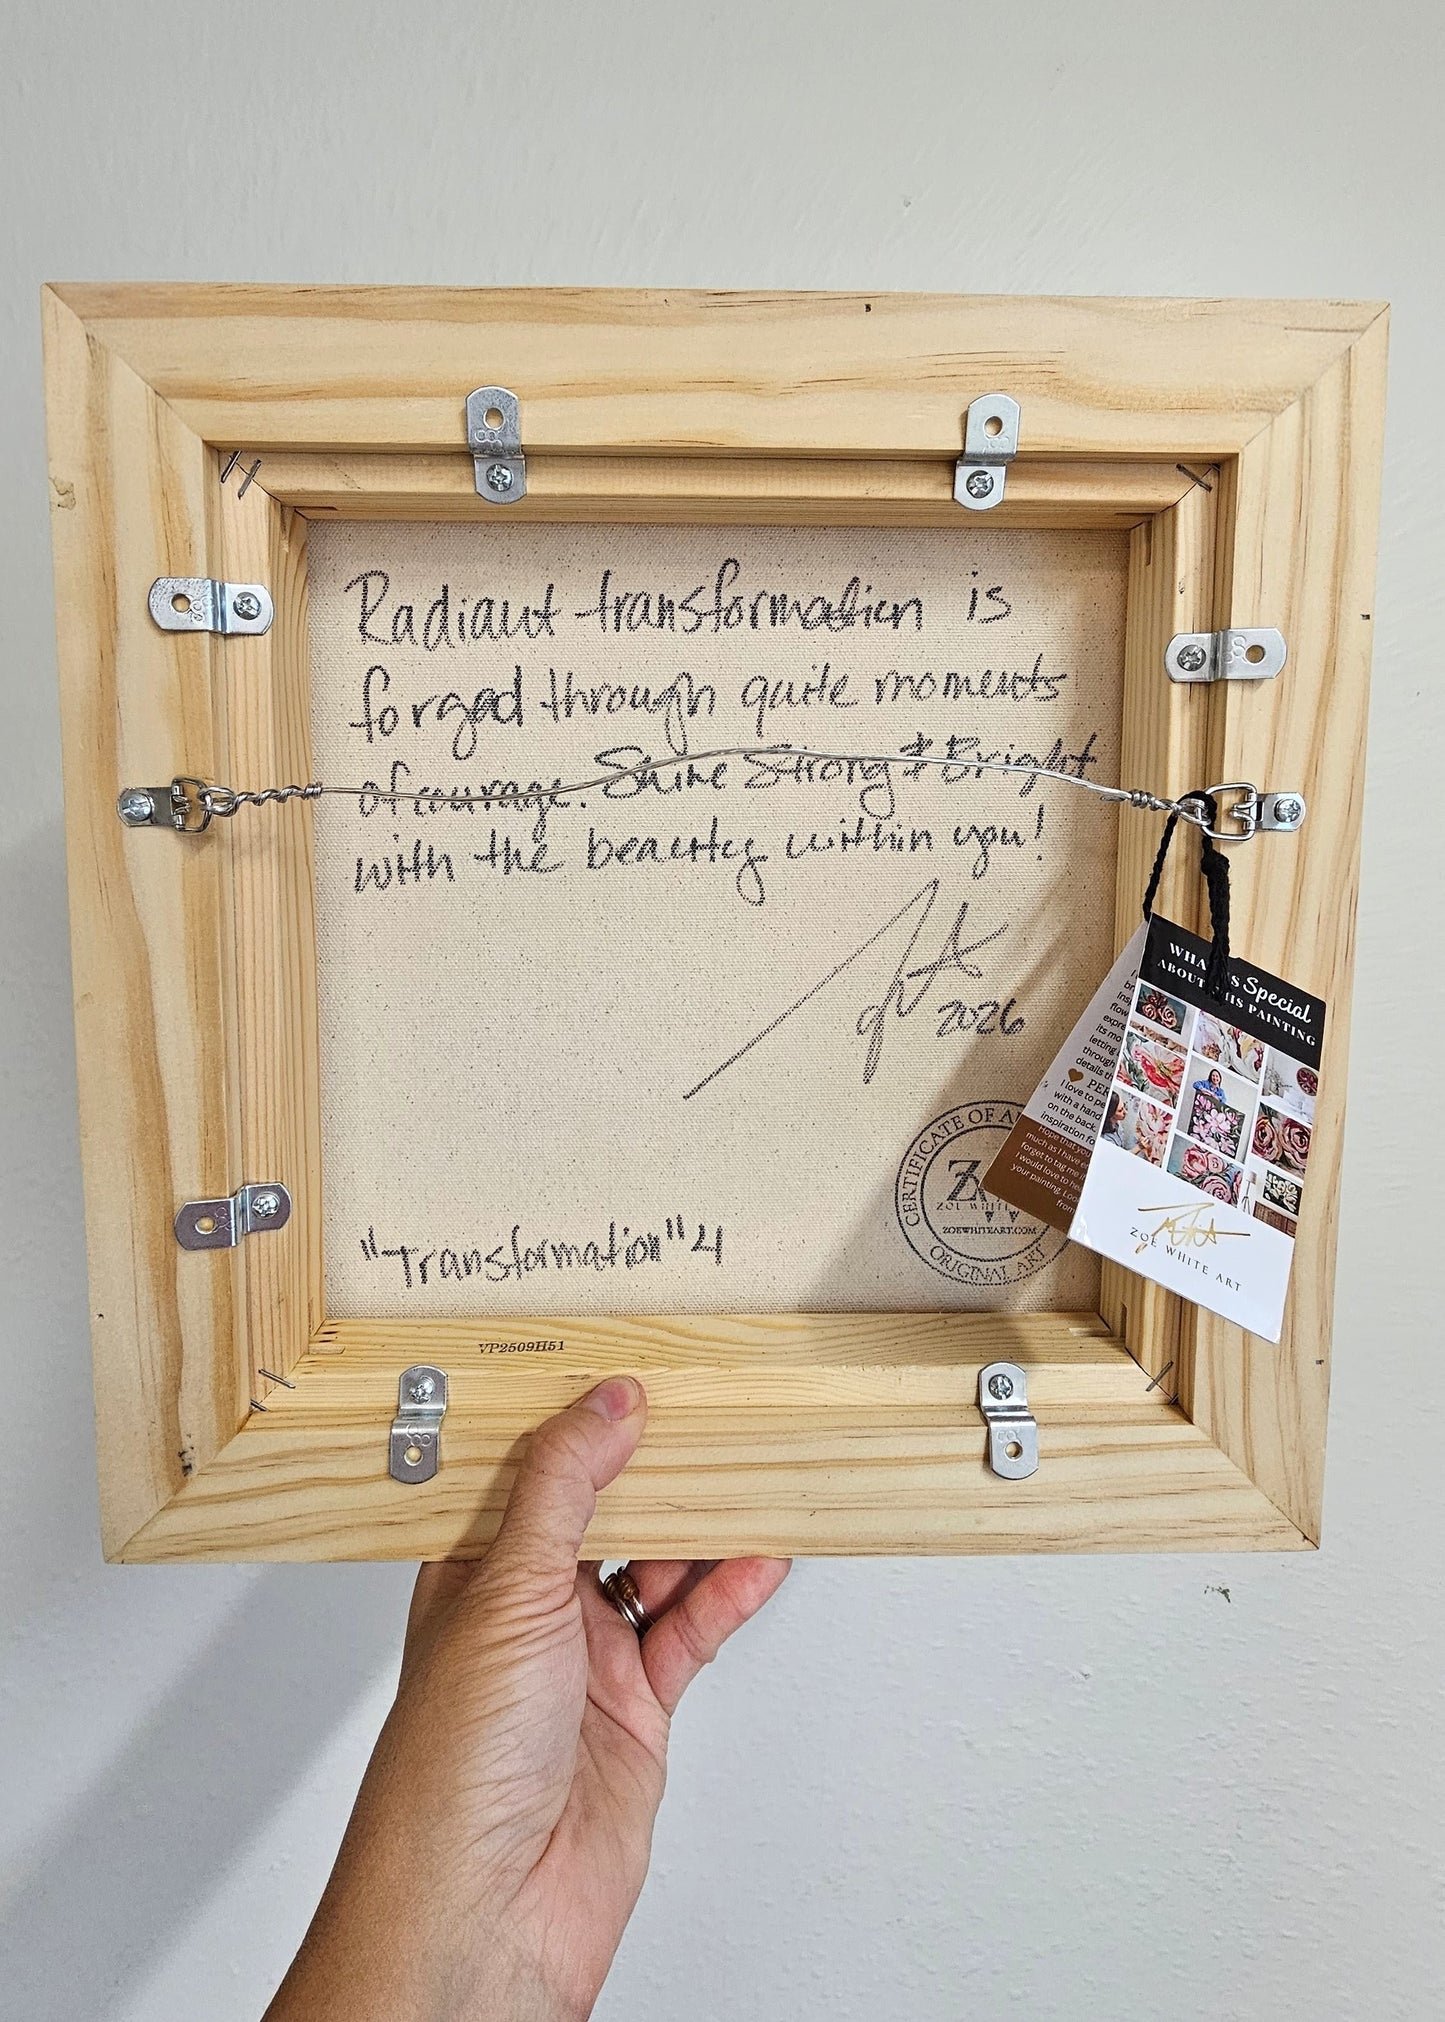 Radiant transformation is
forged through quite moments
of courage. Shine Strong & Bright
with the beauty within you!
2026
"Transformation" 4
CERTIFICATE OF
ZW
ZOE WHITE
ZOEWHITEART.COM
ORIGINAL ART
VP2509H51
Special
ABOUT THIS PAINTING
ZOE WHITE ART
letting
through
details
I love to
with a hand
on the back
inspiration
Hope that you
much as I have
forget to tag me
I would love to
your painting.
from